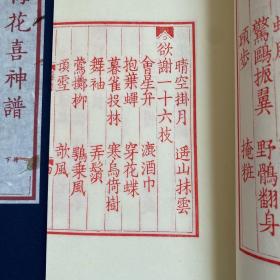 驚鷗振翼　野鶻翻身
顧步　掩粧
欲謝一十六枝
晴空掛月　遥山抹雲
會星弁　漉酒巾
抱葉蟬　穿花蝶
暮雀投林　寒烏倚樹
舞袖　弄鬚
鶯擲柳　鶚乗風
頂雪　欹風
花喜神譜